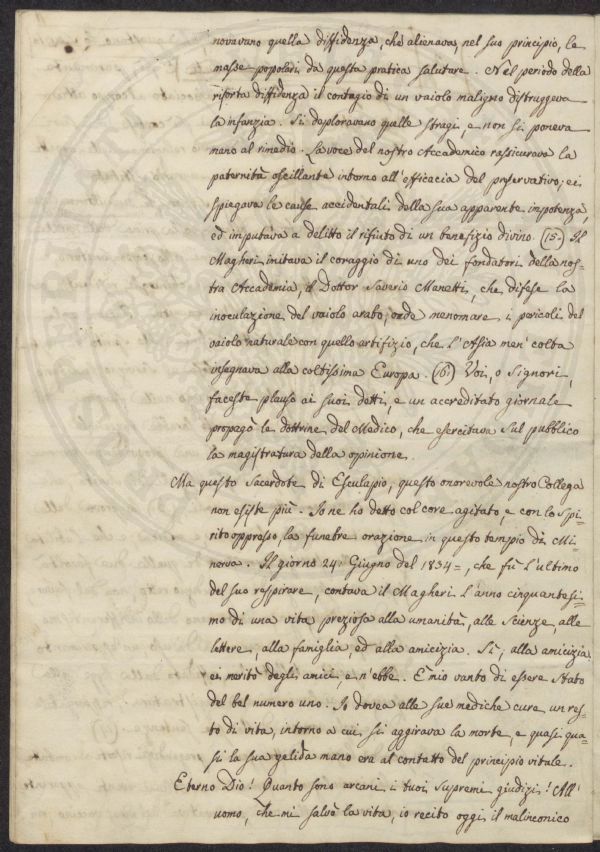 novavano quella diffidenza, che alienava, nel suo principio, le
masse popolari da questa pratica salutare. Nel periodo della
risorta diffidenza il contagio di un vaiolo maligno distruggeva
la infanzia. Si deploravano quelle stragi, e non si poneva
mano al rimedio. La voce del nostro Accademico rassicurava la
paternità oscillante intorno all'efficacia del preservativo; ei
spiegava le cause accidentali della sua apparente impotenza,
ed imputava a delitto il rifiuto di un benefizio divino. (15.) Il
Magheri imitava il coraggio di uno dei fondatori della nos=
tra Accademia, il Dottor Saverio Manetti, che difese la
inoculazione del vaiolo arabo, onde menomare i pericoli del
vaiolo naturale con quello artifizio, che l'Asia men' colta
insegnava alla coltissima Europa. (16.) Voi, o Signori,
faceste plauso ai suoi detti, e un accreditato giornale
propagò le dottrine del Medico, che esercitava sul pubblico
la magistratura della opinione.
Ma questo Sacerdote di Esculapio, questo onorevole nostro Collega
non esiste più. Io ne ho detto col core agitato, e con lo Spi=
rito oppresso, la funebre orazione in questo tempio di Mi=
nerva. Il giorno 24. Giugno del 1834=, che fù l'ultimo
del suo respirare, contava il Magheri l'anno cinquantesi=
mo di una vita preziosa alla umanità, alle Scienze, alle
lettere, alla famiglia, ed alla amicizia. Sì, alla amicizia:
ei meritò degli amici, e n'ebbe. È mio vanto di essere stato
del bel numero uno. Io dovea alle sue mediche cure un res=
to di vita, intorno a cui si aggirava la morte, e quasi qua=
si la sua gelida mano era al contatto del principio vitale.
Eterno Dio! Quanto sono arcani i tuoi supremi giudizi! All'
uomo, che mi salvò la vita, io recito oggi il malinconico